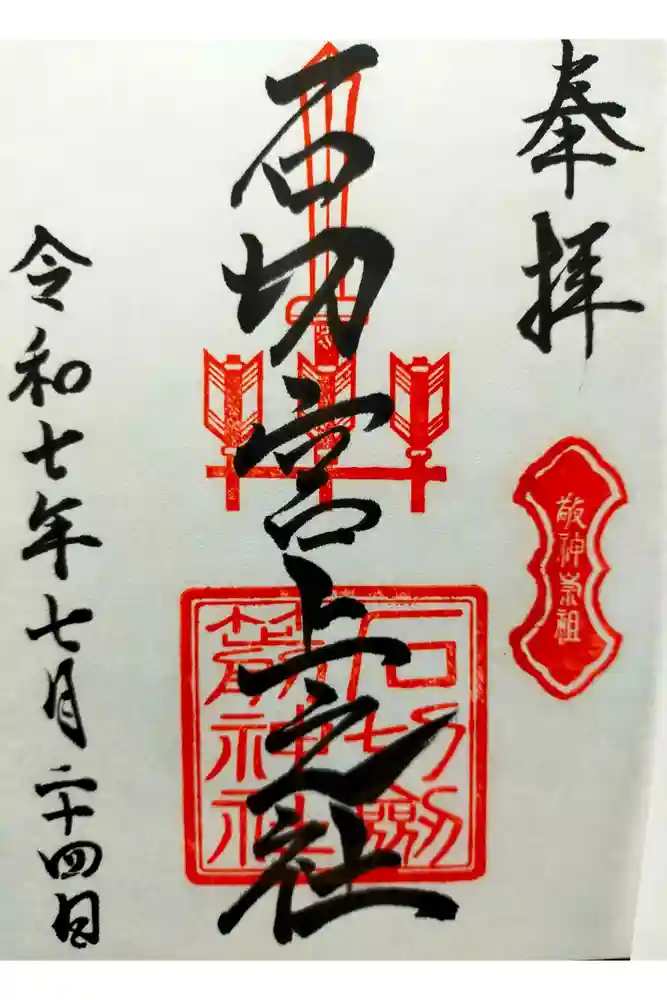 奉拝
敬神崇祖
石切宮上之社
石切劔
箭神社
令和七年七月二十四日